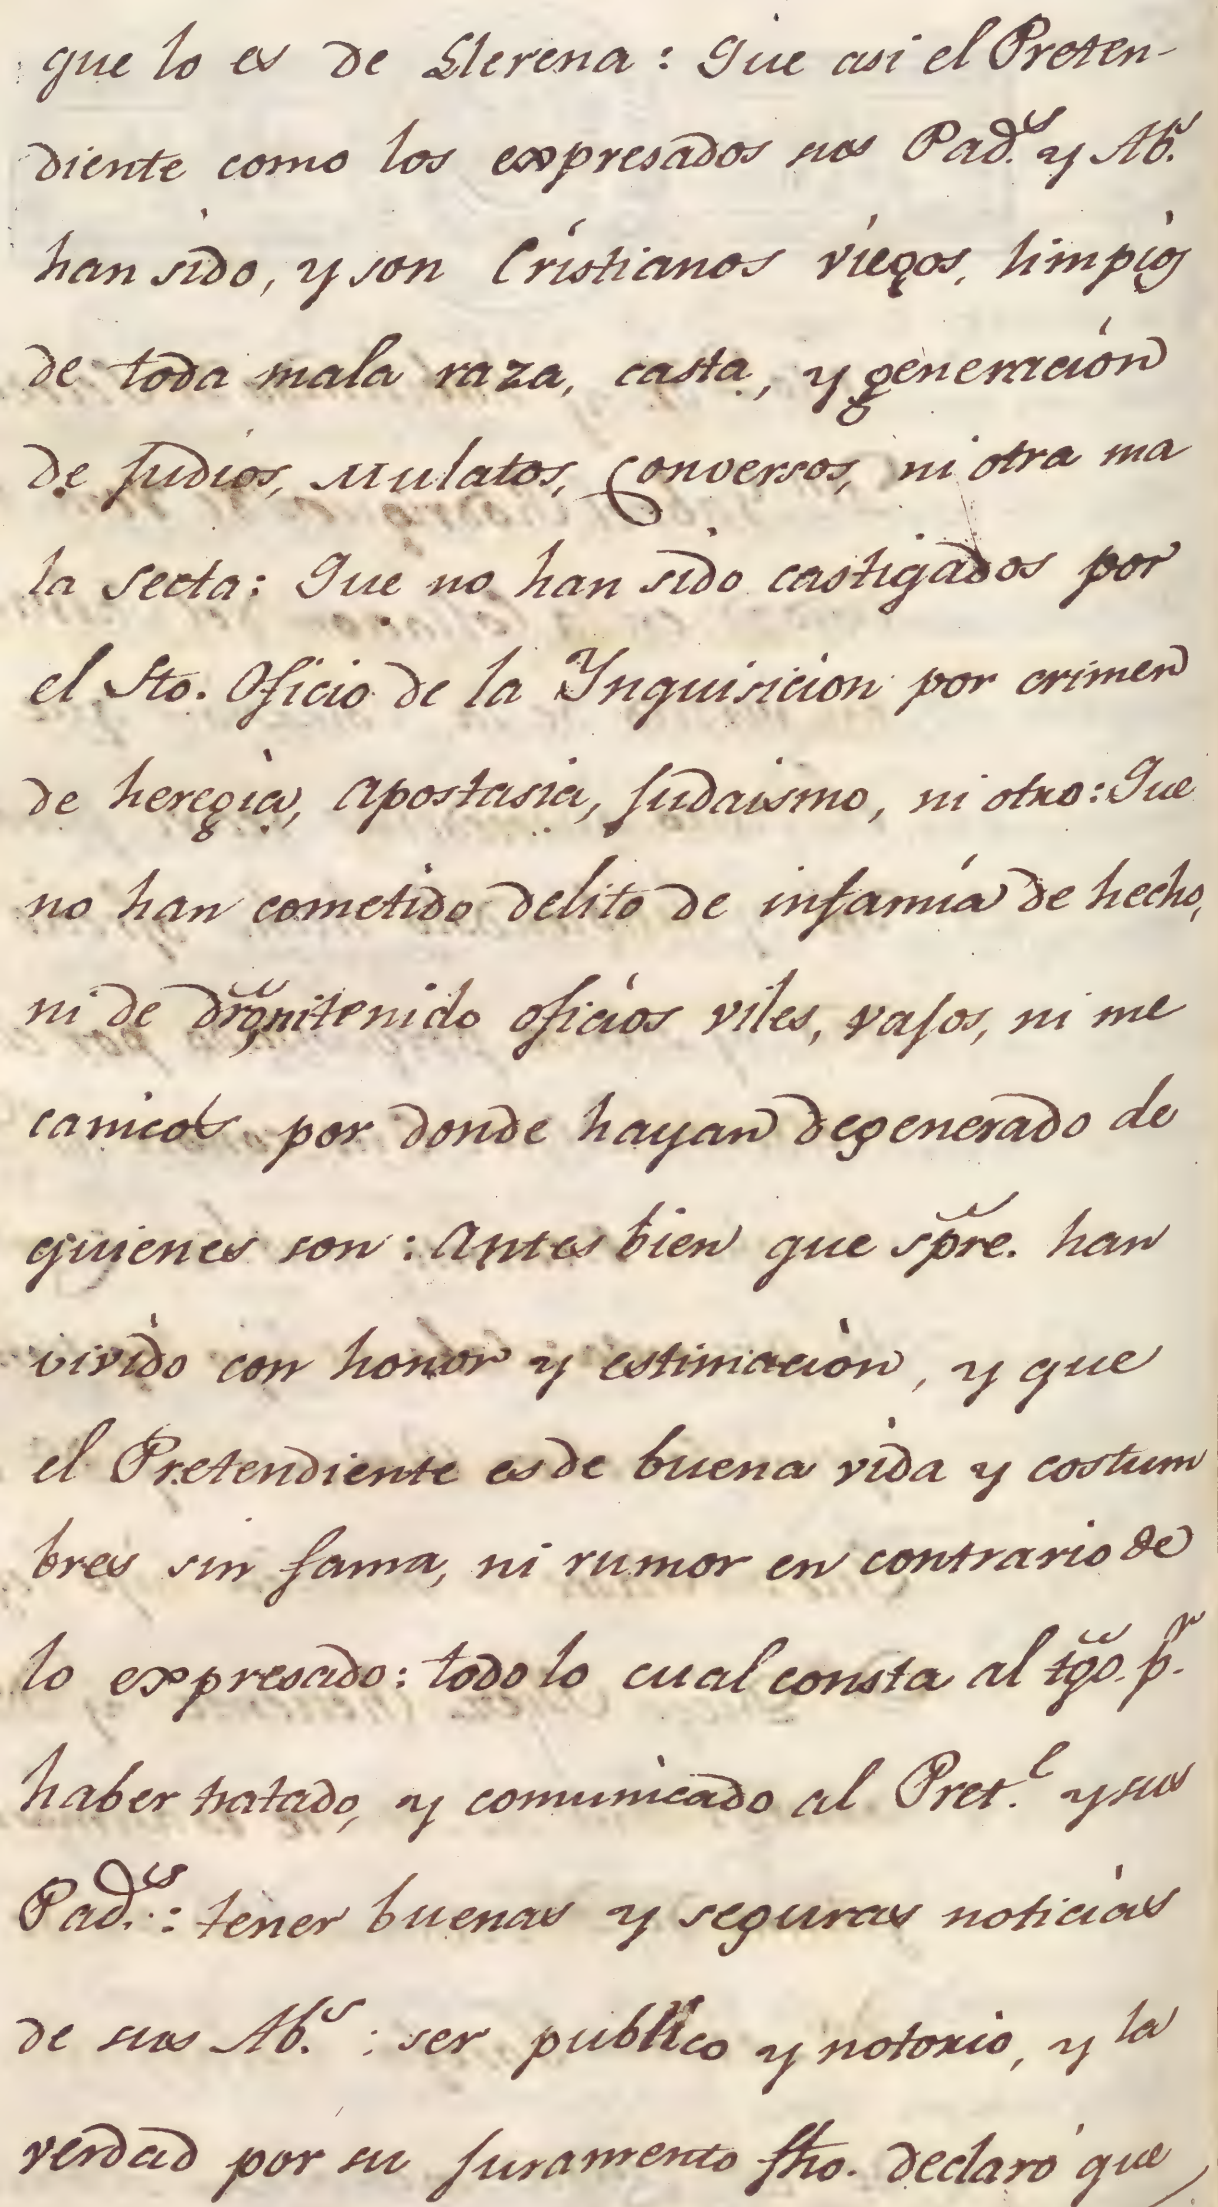 que lo es de Llerena: Que asi el Preten-
diente como los expresados sus Pad.s y Ab.s
han sido, y son Cristianos viegos, limpios
de toda mala raza, casta, y generacion
de Judios, Mulatos, Conversos, ni otra ma
la Secta: Que no han sido castigados por
el Sto. Oficio de la Ynquisicion por crimen
de heregia, Apostasia, Judaismo, ni otro: Que
no han cometido delito de infamia de hecho,
ni de dro, ni tenido oficios viles, vajos, ni me
canicos por donde hayan degenerado de
quienes son: Antes bien que spre. han
vivido con honor y estimacion, y que
el Pretendiente es de buena vida y costum
bres sin fama, ni rumor en contrario de
lo expresado: todo lo cual consta al tgo. p.r
haber tratado, y comunicado al Pret.e y sus
Pad.s: tener buenas y seguras noticias
de sus Ab.s: ser publico y notorio, y la
verdad por su juramento fho. declaró que